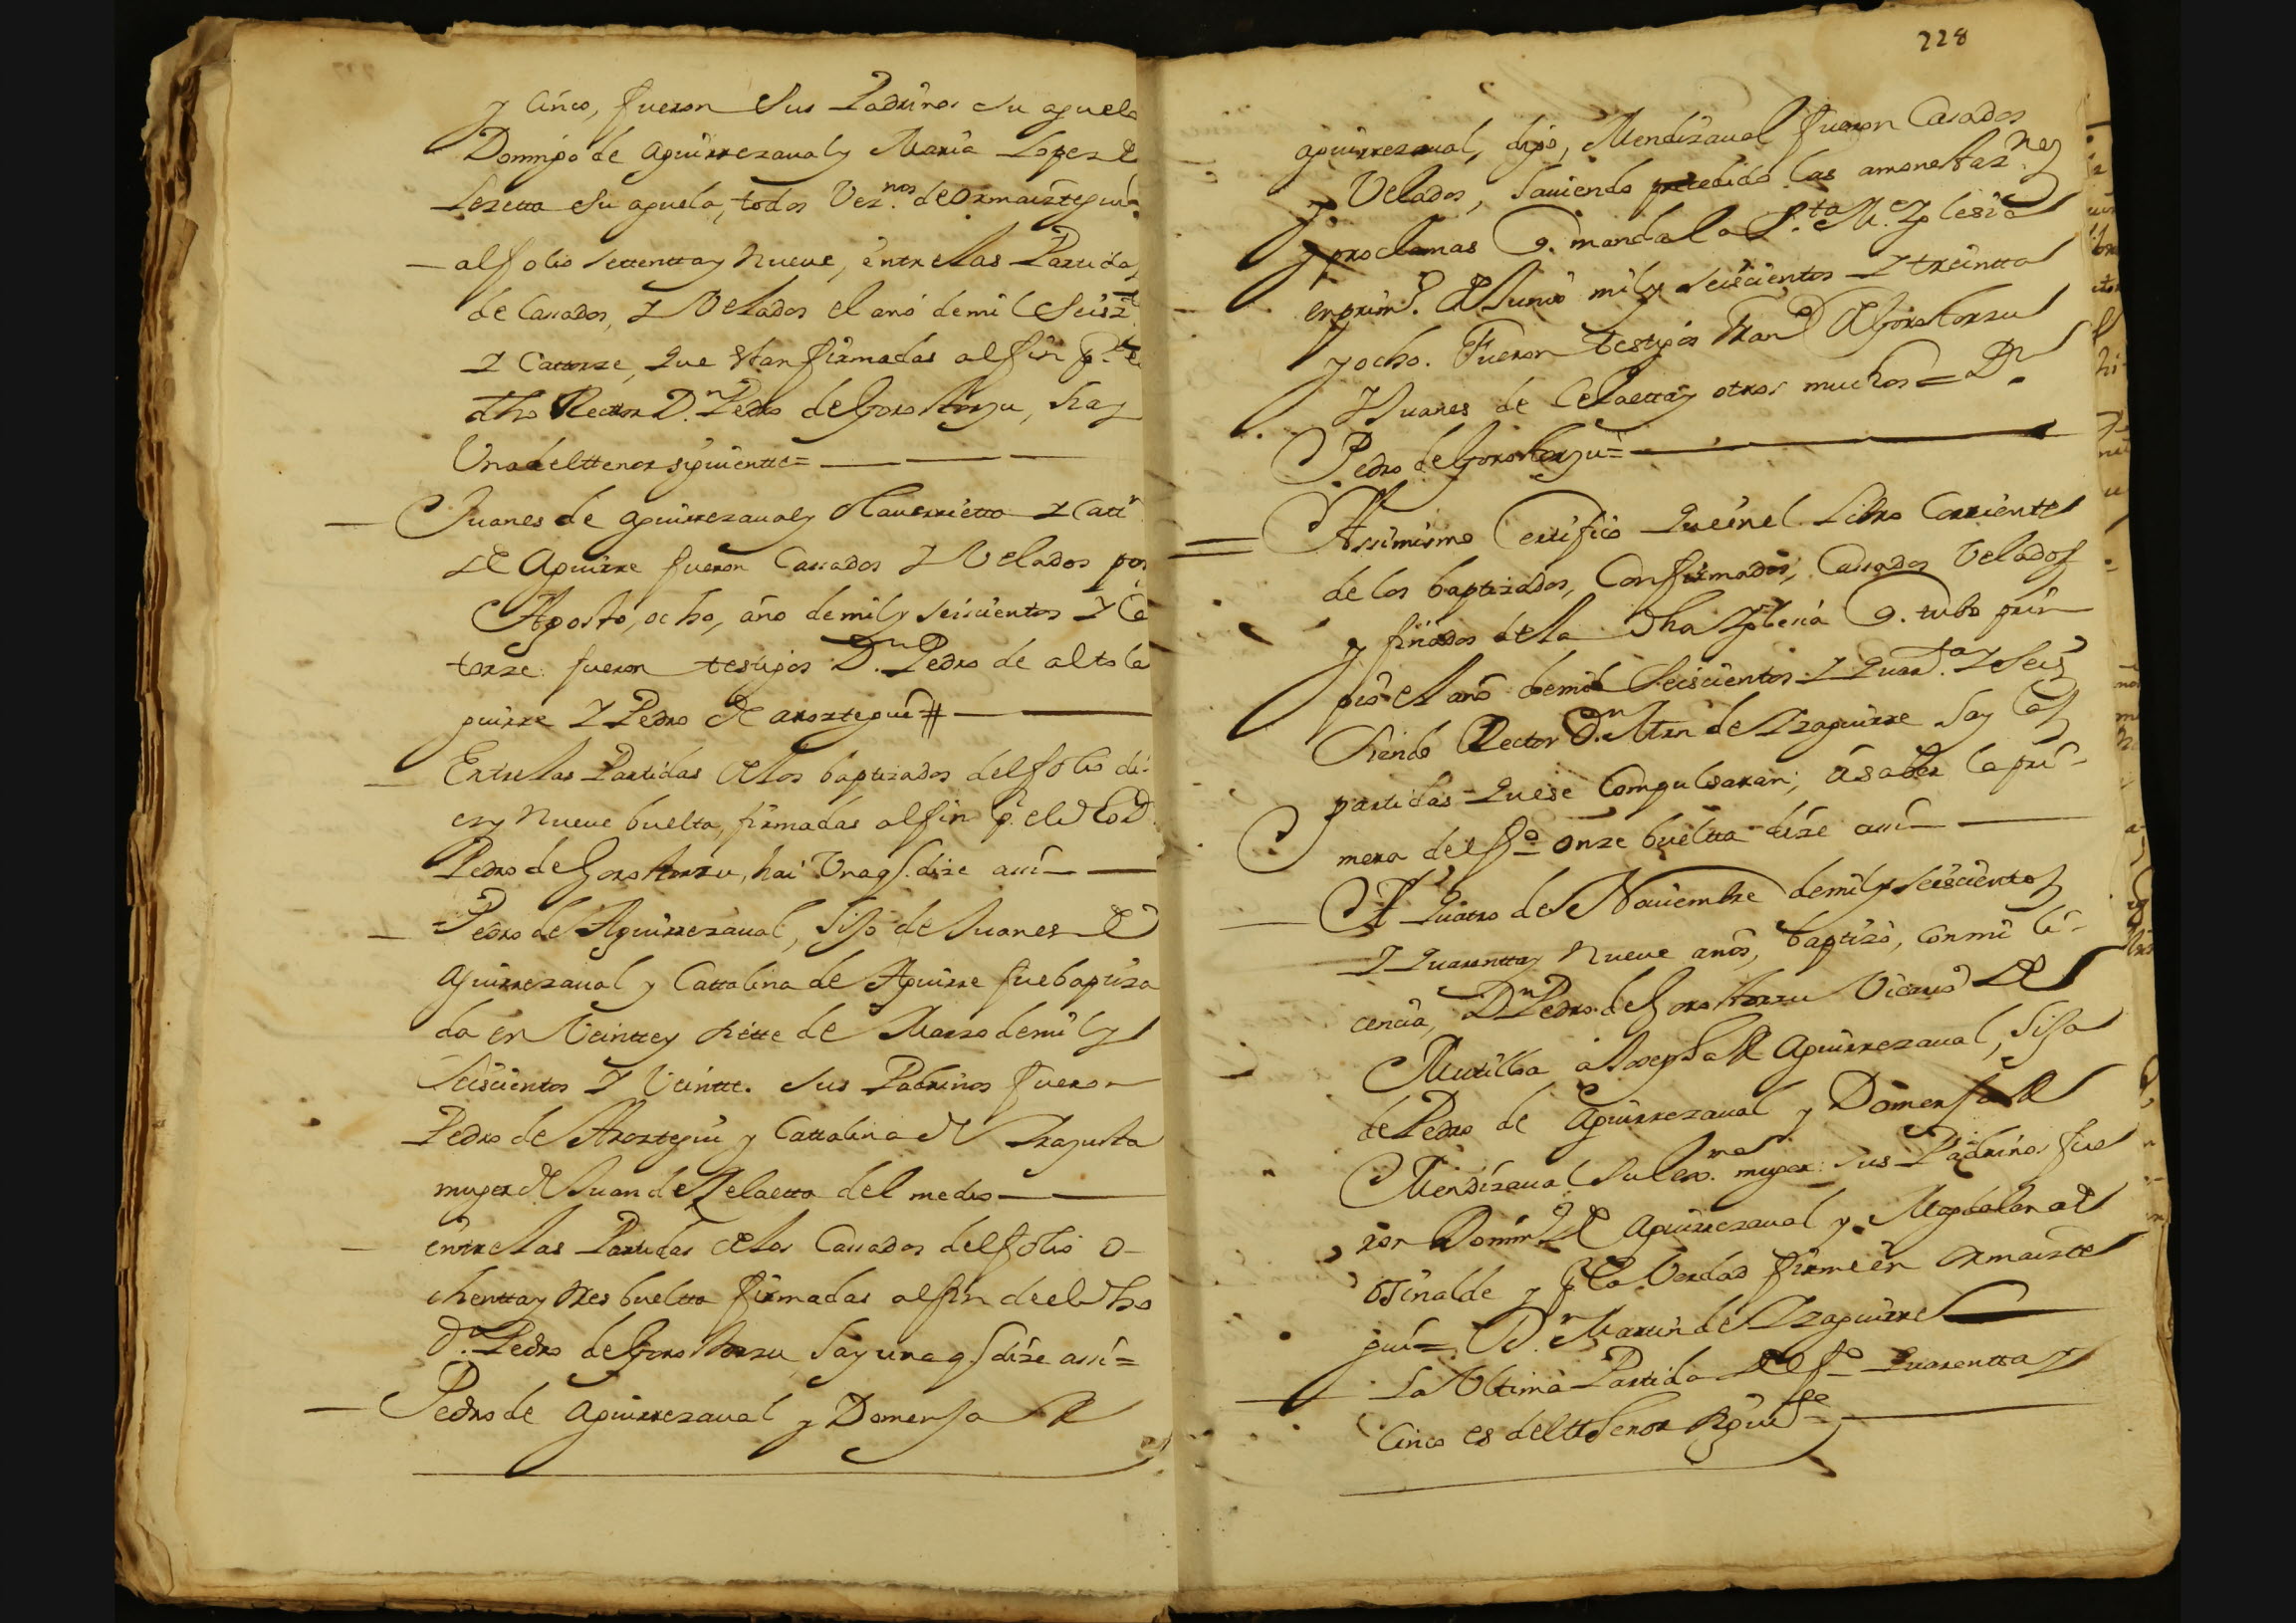 y Cinco, fueron Sus Padrinos Su aguelo
Domingo de aguirrezaual y Maria Lopez de
Lezetta Su aguela, todos Vez.nos de Ormaiztegui.
al folio settentta y nueue, entre las Partidas
de Casados, y Velados el año de mil Seisz.
y Catorze, que estan firmadas al fin p.r el
dho Rector D.n Pedro de Gorostorzu, hay
Una del ttenor siguientte =
Juanes de aguirrezaual y Olauerrietta y Catt.
de Aguirre fueron Casados y Velados por
Agosto, ocho, año de mil y seiscientos y Ca
torze: fueron testigos D.n Pedro de altola
guirre y Pedro de aroztegui #
Entre las Partidas de los baptizados del folio di=
ez y nueue buelta, firmadas al fin p. el dho D.
Pedro de Gorostorzu, hai Una q. dize assi
Pedro de Aguirrezaual, hijo de Juanes de
aguirrezaual y Cattalina de Aguirre fue baptiza
do en Veintte y siette de Marzo de mil y
Seiscientos y Veintte. Sus Padrinos fueron
Pedro de Aroztegui y Cattalina de Yzagusta
muger de Juan de Zelaetta del medio
entre las Partidas de los Casados del folio o-
chentta y tres bueltta firmadas al fin de el dho
D.n Pedro de Gorostorzu hay una q. dize assi =
Pedro de aguirrezaual y Domenja de
228
aguirrezaual, digo, Mendizaual fueron Casados
y Velados, hauiendo precedido las amonestaz.nes
y proclamas q. manda la S.ta M.e Yglesia
en prim.o de Junio mil y seiscientos y treintta
y ocho. Fueron testigos Fran.co de Gorostorzu
y Juanes de Celaetta y otros muchos = D.n
Pedro de Gorostorzu =
Assimismo Certifico que en el Libro Corrientte
de los baptizados, Confirmados, Casados Velados
y finados de la dha Yglesia q. tubo prin
pio el año de mil Seiscientos y quar.ta y Seis
siendo Rector D.n Mrn de Yzaguirre hay las
partidas que se Compulsaran; asaber la pri-
mera del f.o onze bueltta dize assi
A quatro de Nouiembre de mil y seiscientos
y quarentta y nueue años, baptizo, con mi li-
cencia, D.n Pedro de Gorostorzu Vicario de
Mutilloa a Josepha de aguirrezaual, hija
de Pedro de aguirrezaual y Domenja de
Mendizaual Su lex.ma muger: sus Padrinos fue
ron Domin.o de aguirrezaual y Magdalena de
osinalde y p.r la Verdad firme en Ormaizte
gui = D.n Martin de Yzaguirre
La Ultima Partida del f.o quarentta y
Cinco es del tthenor sigui.te =